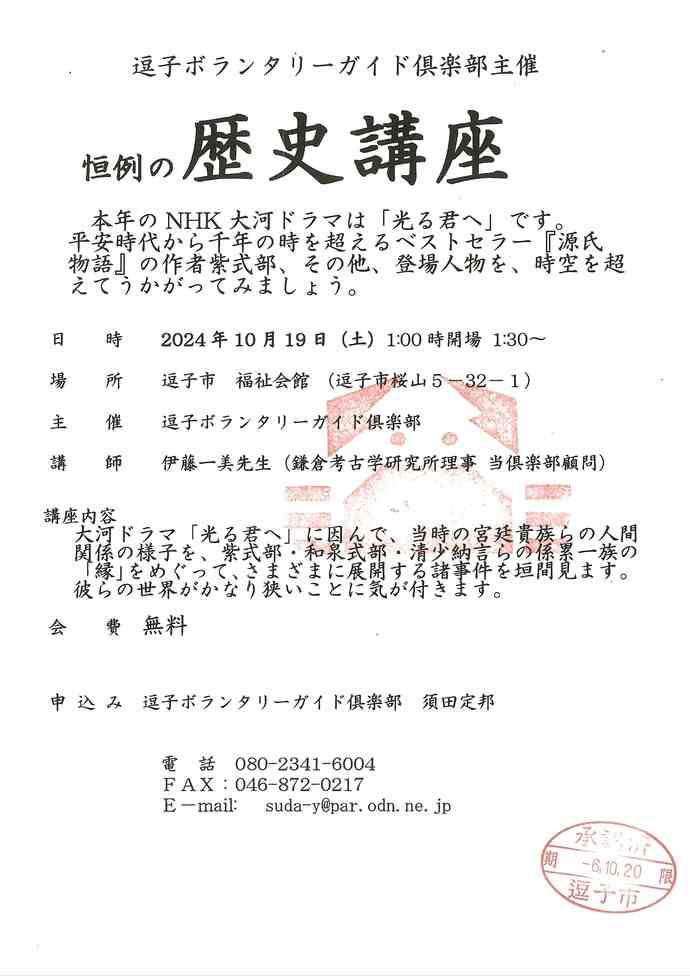 逗子ボランタリーガイド倶楽部主催
恒例の 歴史講座
本年の NHK 大河ドラマは「光る君へ」です。
平安時代から千年の時を超えるベストセラー『源氏
物語』の作者紫式部、その他、登場人物を、時空を超
えてうかがってみましょう。
日 時 2024年10月19日（土）1:00時開場 1:30～
場 所 逗子市 福祉会館 （逗子市桜山５－32－１）
主 催 逗子ボランタリーガイド倶楽部
講 師 伊藤一美先生（鎌倉考古学研究所理事 当倶楽部顧問）
講座内容
大河ドラマ「光る君へ」に因んで、当時の宮廷貴族らの人間
関係の様子を、紫式部・和泉式部・清少納言らの係累一族の
「縁」をめぐって、さまざまに展開する諸事件を垣間見ます。
彼らの世界がかなり狭いことに気が付きます。
会 費 無料
申 込 み 逗子ボランタリーガイド倶楽部 須田定邦
電 話 080-2341-6004
ＦＡＸ：046-872-0217
Ｅ－mail: suda-y@par.odn.ne.jp
承認済
期 -6.10.20 限
逗子市